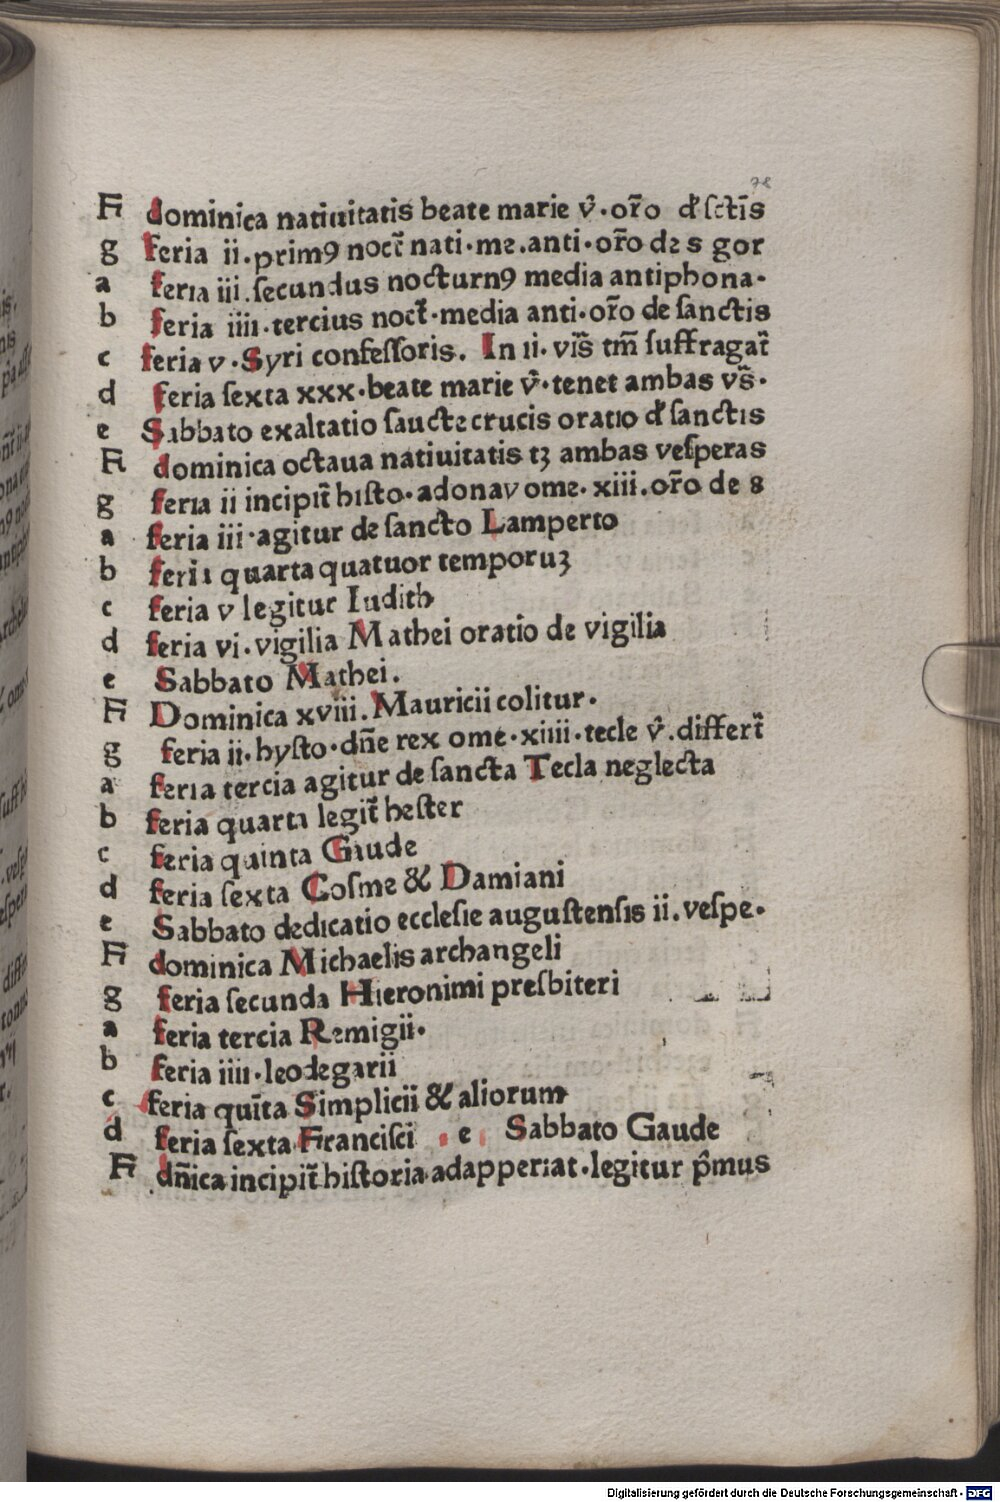 78
A dominica natiuitatis beate marie v̂·or̄o d' sct̄is
g feria ii.primꝰ noct̄ nati·me.anti·or̄o de s gor
a feria iii.secundus nocturnꝰ media antiphona·
b feria iiii·tercius noct̄·media anti·or̄o de sanctis
c feria v·Syri confessoris. In ii·vis̄ tm̄ suffragat̄
d feria sexta xxx·beate marie v̂·tenet ambas vs̄·
e Sabbato exaltatio sancte crucis oratio d' sanctis
A dominica octaua natiuitatis tꝫ ambas vesperas
g feria ii incipit̄ histo·adonay ome·xiii.or̄o de 8
a feria iii·agitur de sancto Lamperto
b feria quarta quatuor temporuꝫ
c feria v legitur Iudith
d feria vi.vigilia Mathei oratio de vigilia
e Sabbato Mathei.
A Dominica xviii.Mauricii colitur·
g feria ii·hysto·dn̄e rex ome·xiiii·tecle v̂.differt̄
a feria tercia agitur de sancta Tecla neglecta
b feria quarta legit̄ hester
c feria quinta Gaude
d feria sexta Cosme & Damiani
e Sabbato dedicatio ecclesie augustensis ii.vespe·
A dominica Michaelis archangeli
g feria secunda Hieronimi presbiteri
a feria tercia Remigii·
b feria iiii·leodegarii
c feria quīta Simplicii & aliorum
d feria sexta Francisci e Sabbato Gaude
A dn̄ica incipit̄ historia adapperiat·legitur p̄mus
Digitalisierung gefördert durch die Deutsche Forschungsgemeinschaft - DFG